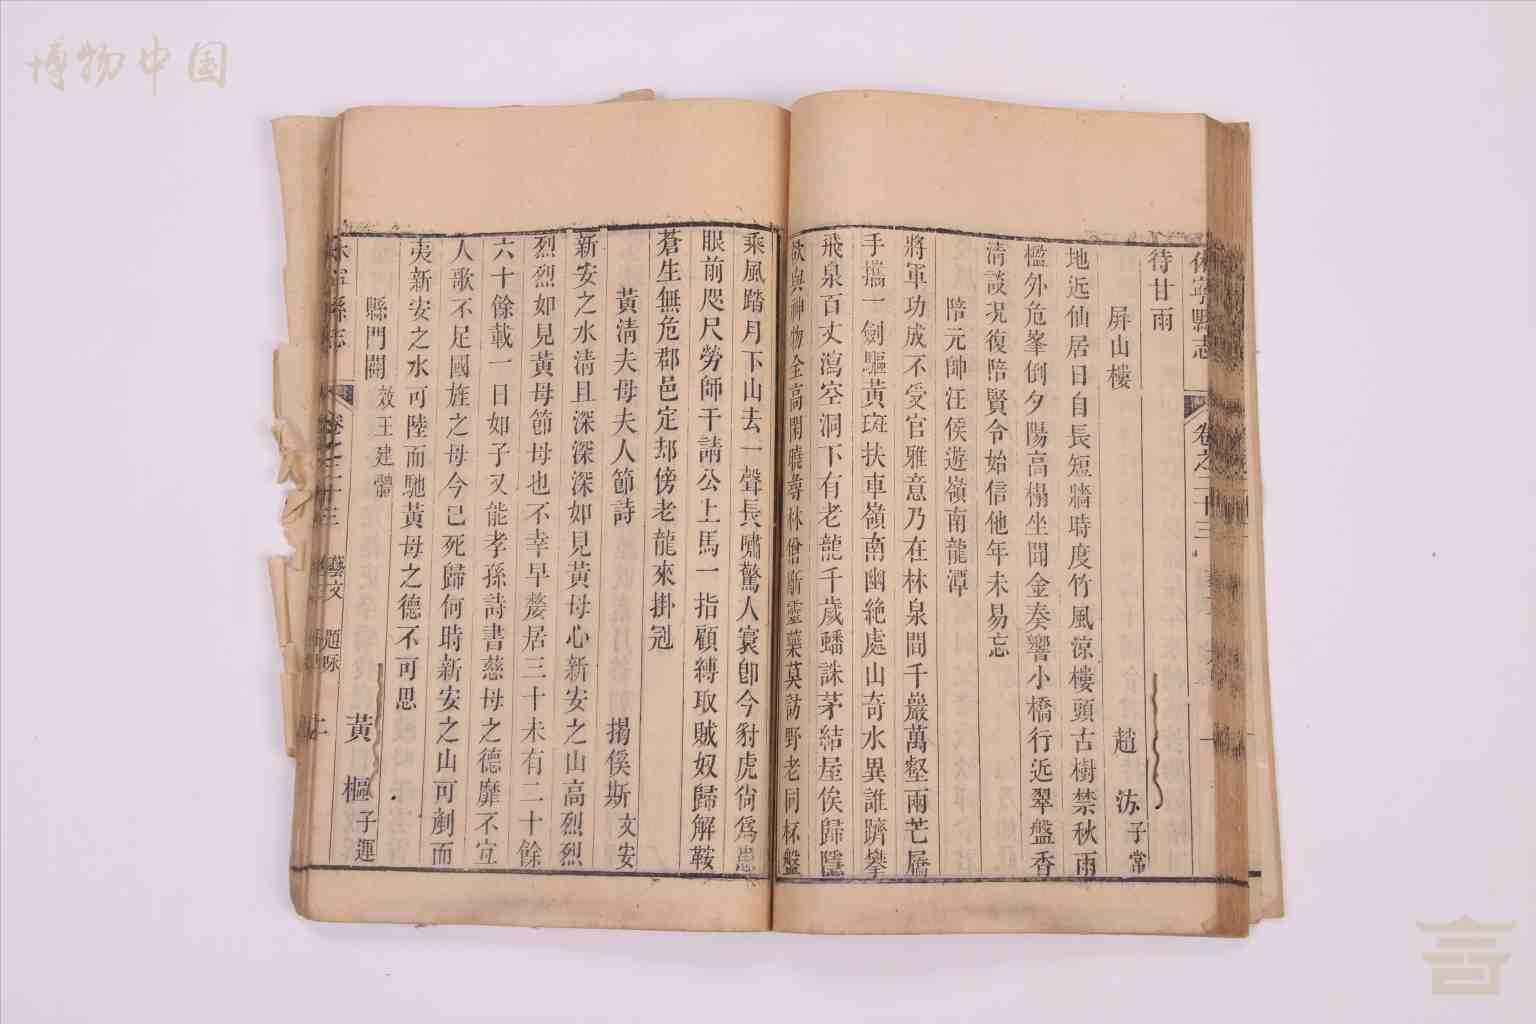 博物中国
休寧縣志
卷之二十三
待甘雨
屏山樓
趙汸子常
地近仙居日自長短牆時度竹風涼樓頭古樹禁秋雨
檻外危峯倒夕陽高榻坐聞金奏響小橋行近翠盤香
清談況復陪賢令始信他年未易忘
陪元帥汪侯遊嶺南龍潭
將軍功成不受官雅意乃在林泉間千巖萬壑雨芒屩
手攜一劍驅黃斑扶車嶺南幽絶處山奇水異誰躋攀
飛泉百丈瀉空洞下有老龍千歲蟠誅茅結屋俟歸隱
欲與神物全高閑曉尋林僧斸靈藥莫訪野老同杯盤
乘風踏月下山去一聲長嘯驚人寰卽今豺虎尙爲患
眼前咫尺勞師干請公上馬一指顧縛取賊奴歸解鞍
蒼生無危郡邑定却傍老龍來掛冠
黃淸夫母夫人節詩
揭傒斯文安
新安之水淸且深深深如見黃母心新安之山高烈烈
烈烈如見黃母節母也不幸早嫠居三十未有二十餘
六十餘載一日如子又能孝孫詩書慈母之德靡不宜
人歌不足國旌之母今已死歸何時新安之山可剷而
夷新安之水可陸而馳黃母之德不可思
縣門關效王建體
黃樞子運
休寧縣志
卷之二十三
藝文
題咏
二